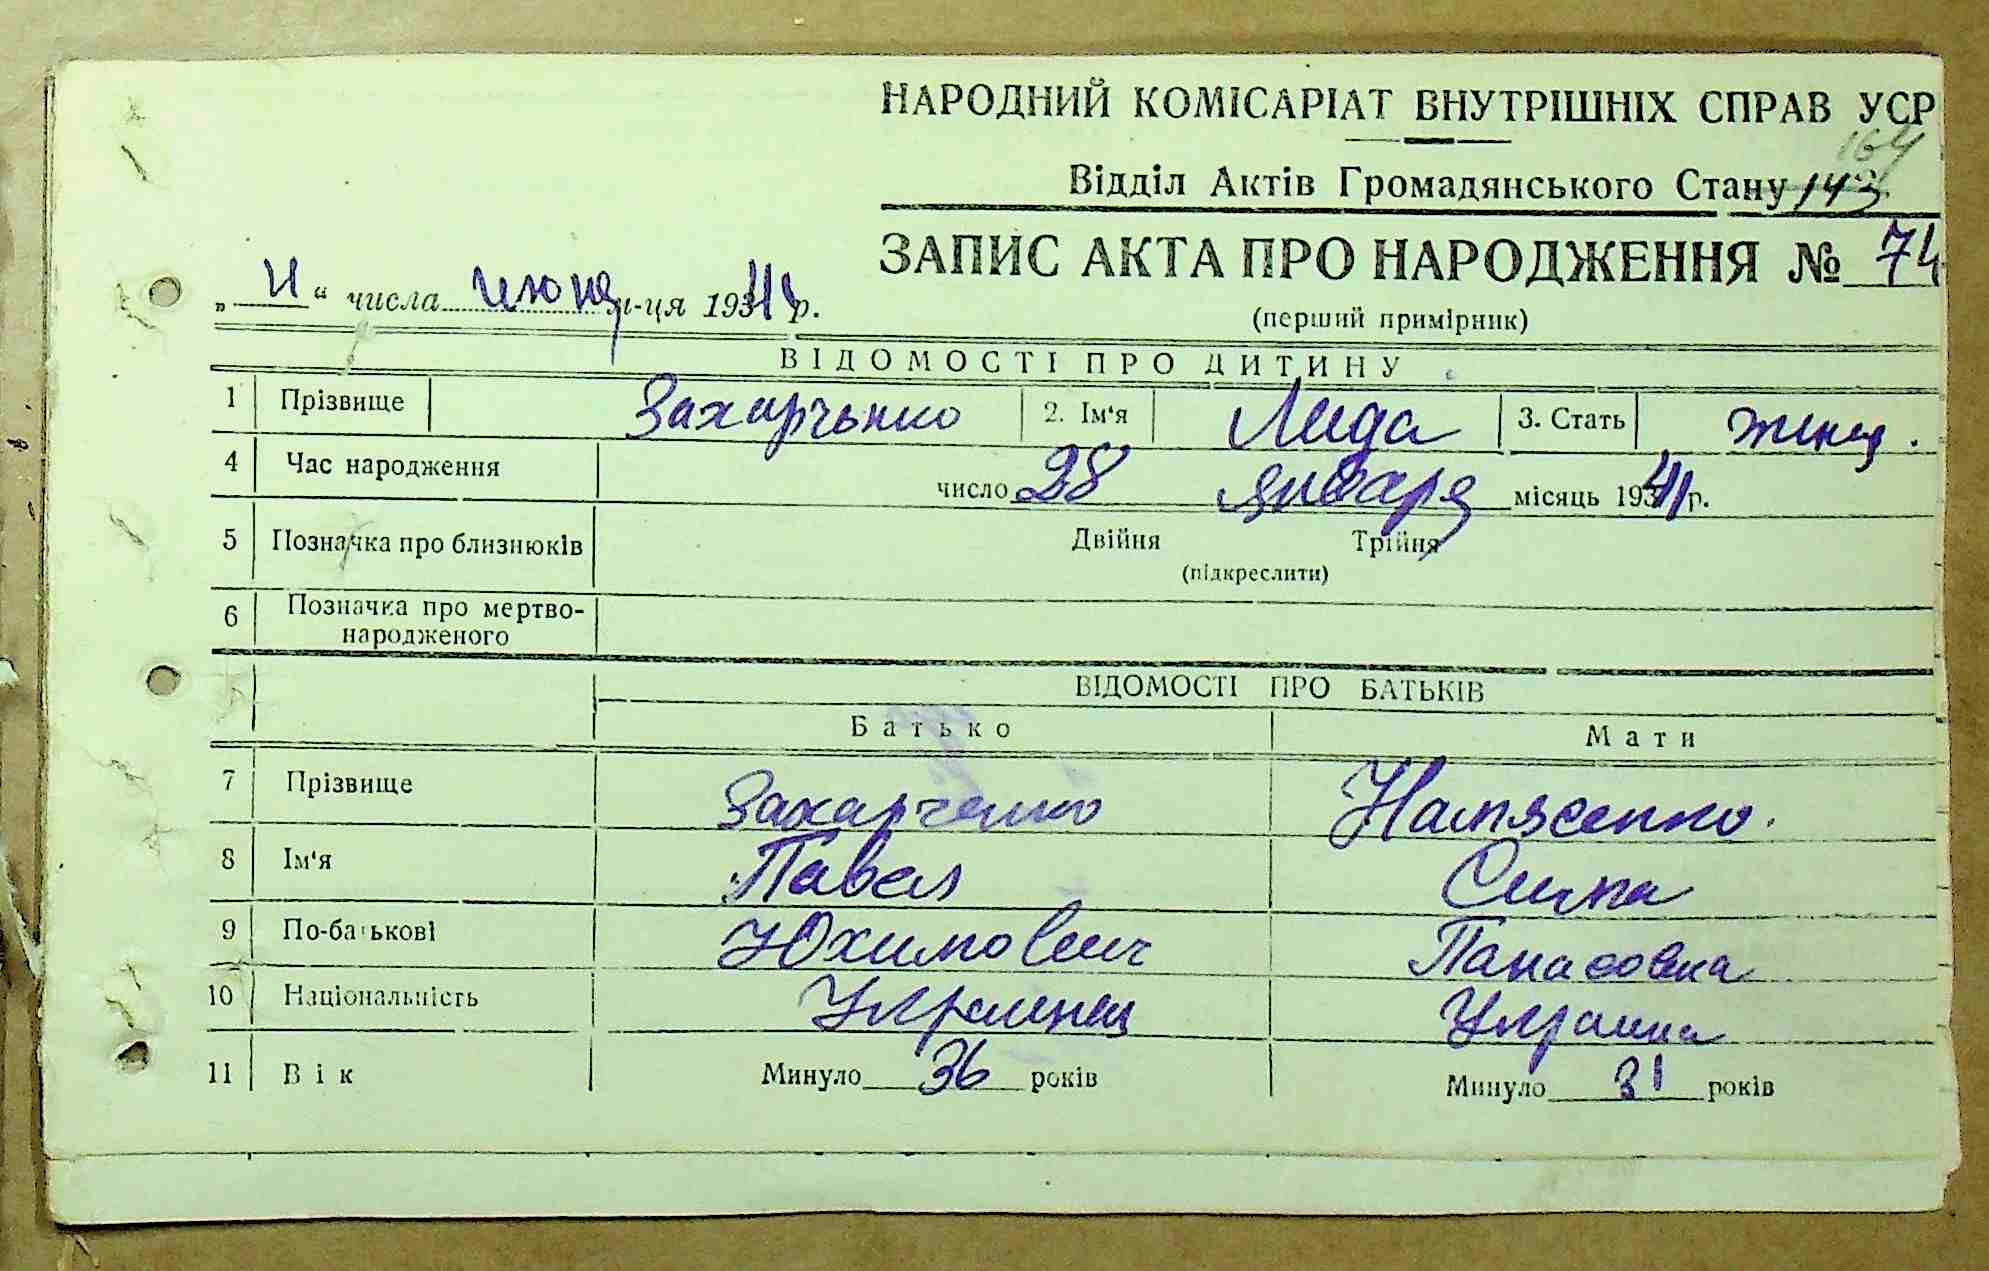 НАРОДНИЙ КОМІСАРІАТ ВНУТРІШНІХ СПРАВ УСР
164
Відділ Актів Громадянського Стану 143
ЗАПИС АКТА ПРО НАРОДЖЕННЯ № 74
„ “ числа июня м-ця 1941 р.
(перший примірник)
ВІДОМОСТІ ПРО ДИТИНУ
1 Прізвище Захарченко 2. Ім‘я Лида 3. Стать женщ.
4 Час народження число 28 января місяць 1941 р.
5 Позначка про близнюків Двійня Трійня
(підкреслити)
6 Позначка про мертво-
народженого
ВІДОМОСТІ ПРО БАТЬКІВ
Батько Мати
7 Прізвище Захарченко
8 Ім‘я Павел
9 По-батькові Юхимович Панасовна
10 Національність Украинец Украинка
11 Вік Минуло 36 років Минуло 31 років